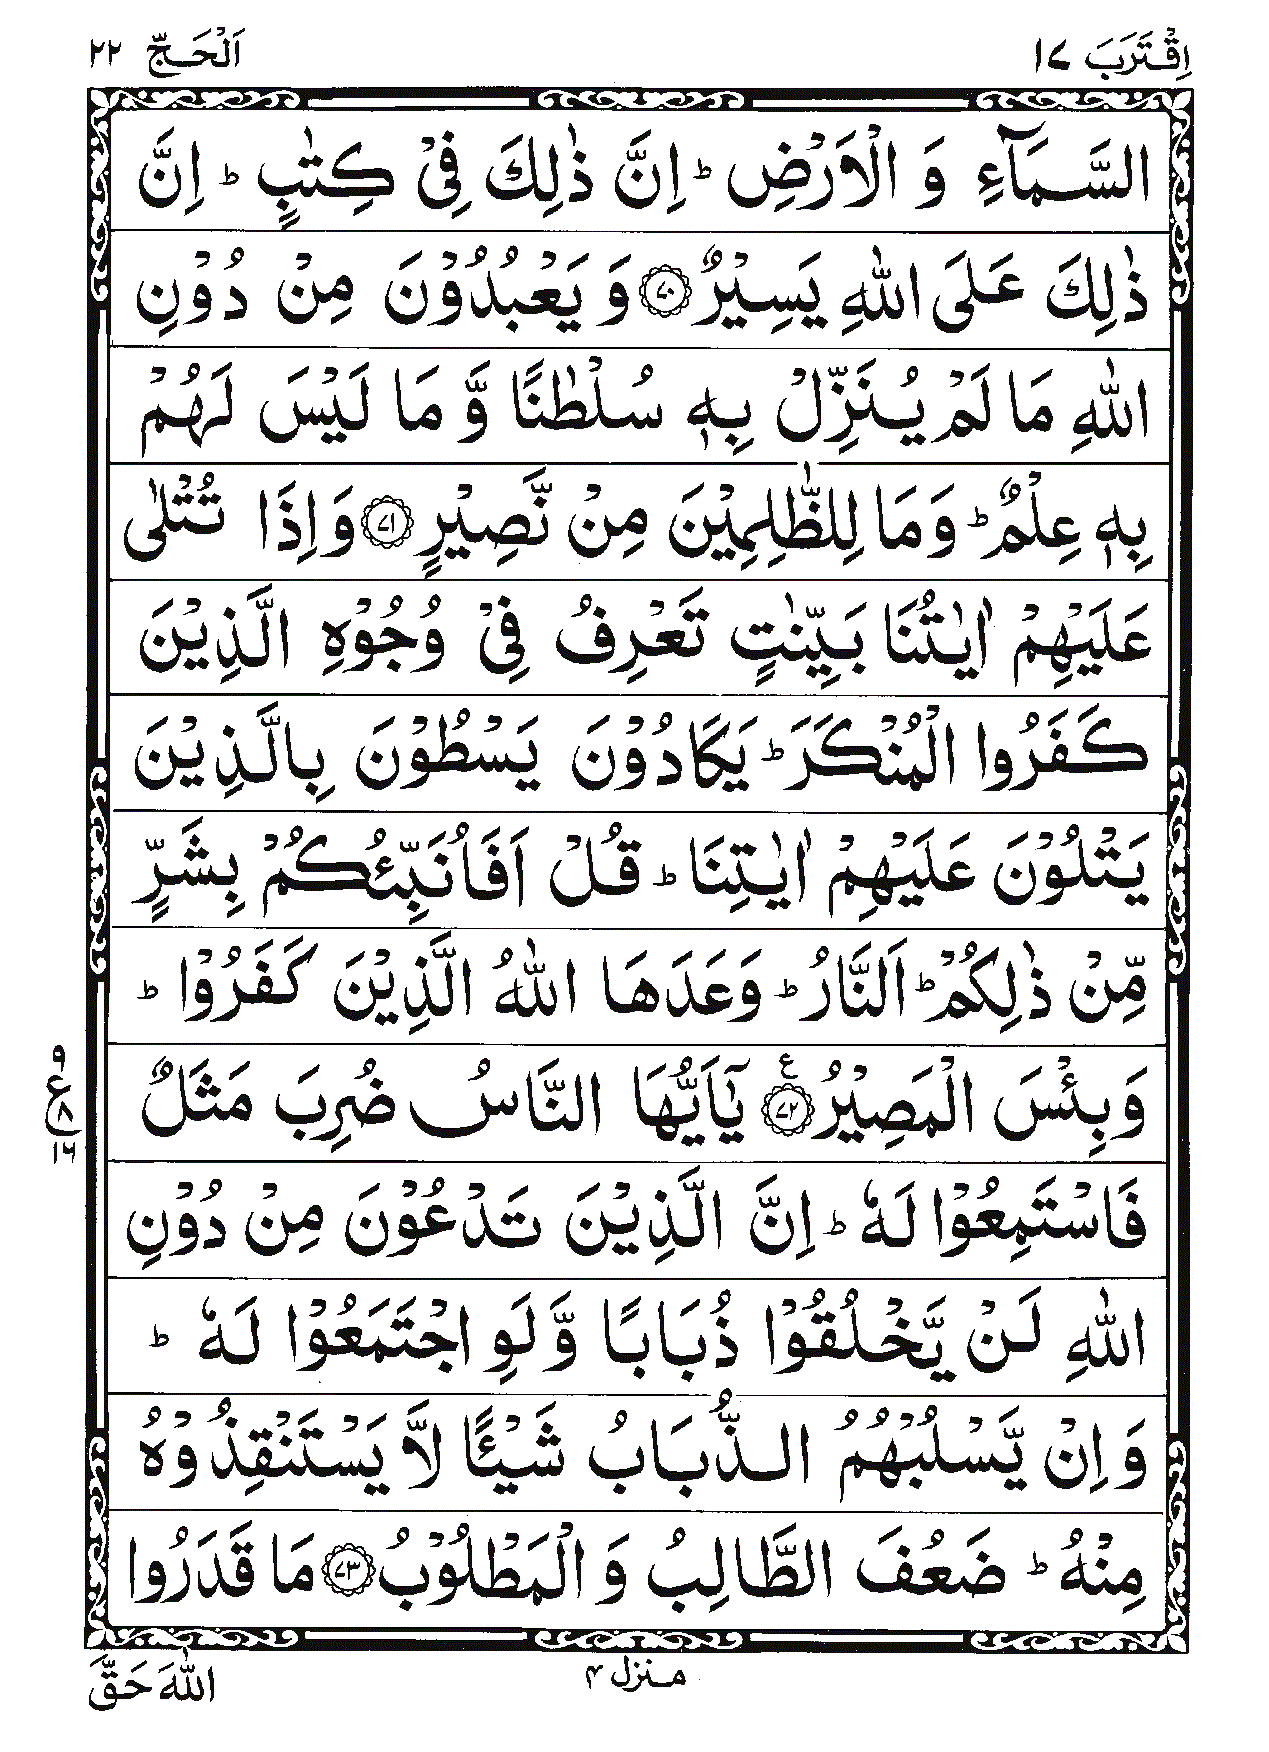 اِقْتَرَبَ ۱۷ اَلْحَجّ ۲۲
السَّمَآءِ وَ الْاَرْضِ ؕ اِنَّ ذٰلِكَ فِیْ كِتٰبٍ ؕ اِنَّ
ذٰلِكَ عَلَی اللّٰهِ یَسِیْرٌ ﴿۷۰﴾ وَ یَعْبُدُوْنَ مِنْ دُوْنِ
اللّٰهِ مَا لَمْ یُنَزِّلْ بِهٖ سُلْطٰنًا وَّ مَا لَیْسَ لَهُمْ
بِهٖ عِلْمٌ ؕ وَمَا لِلظّٰلِمِیْنَ مِنْ نَّصِیْرٍ ﴿۷۱﴾ وَاِذَا تُتْلٰی
عَلَیْهِمْ اٰیٰتُنَا بَیِّنٰتٍ تَعْرِفُ فِیْ وُجُوْهِ الَّذِیْنَ
كَفَرُوا الْمُنْكَرَ ؕ یَكَادُوْنَ یَسْطُوْنَ بِالَّذِیْنَ
یَتْلُوْنَ عَلَیْهِمْ اٰیٰتِنَا ؕ قُلْ اَفَاُنَبِّئُكُمْ بِشَرٍّ
مِّنْ ذٰلِكُمْ ؕ اَلنَّارُ ؕ وَعَدَهَا اللّٰهُ الَّذِیْنَ كَفَرُوْا ؕ
وَبِئْسَ الْمَصِیْرُ ﴿۷۲﴾ ع یٰۤاَیُّهَا النَّاسُ ضُرِبَ مَثَلٌ
۹ ع ۸ ۱۶
فَاسْتَمِعُوْا لَهٗ ؕ اِنَّ الَّذِیْنَ تَدْعُوْنَ مِنْ دُوْنِ
اللّٰهِ لَنْ یَّخْلُقُوْا ذُبَابًا وَّلَوِ اجْتَمَعُوْا لَهٗ ؕ
وَاِنْ یَّسْلُبْهُمُ الذُّبَابُ شَیْـًٔا لَّا یَسْتَنْقِذُوْهُ
مِنْهُ ؕ ضَعُفَ الطَّالِبُ وَ الْمَطْلُوْبُ ﴿۷۳﴾ مَا قَدَرُوا
منزل ۴
اللّٰهَ حَقَّ